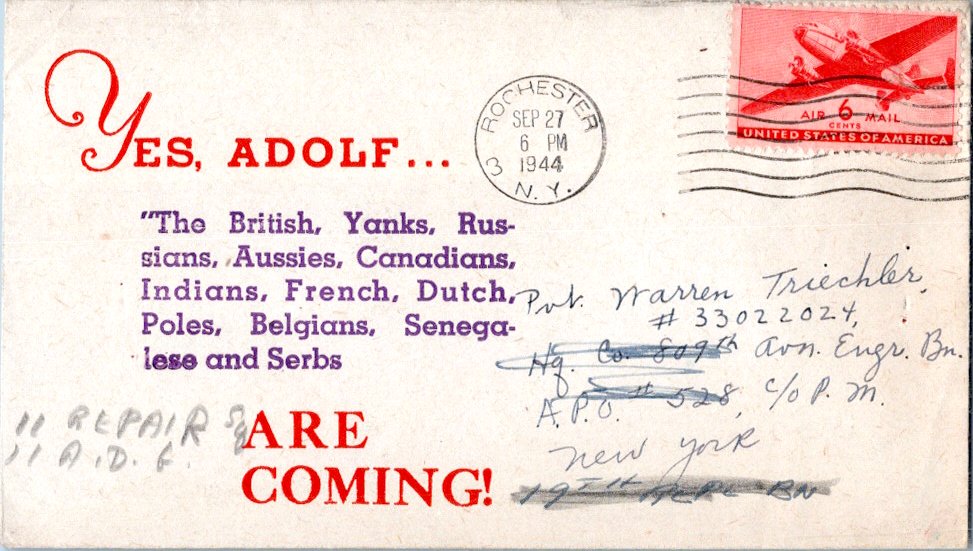 YES, ADOLF...
"The British, Yanks, Rus-
sians, Aussies, Canadians,
Indians, French, Dutch,
Poles, Belgians, Senega-
lese and Serbs
ARE
COMING!
ROCHESTER
SEP 27
6 PM
1944
3
N. Y.
AIR 6 MAIL
CENTS
UNITED STATES OF AMERICA
Pvt. Warren Triechler,
# 33022024,
Hq. Co. 809th Avn. Engr. Bn.
A.P.O. # 528, c/o P. M.
New York
19TH REPL BN
11 REPAIR Sq
11 A.D.G.